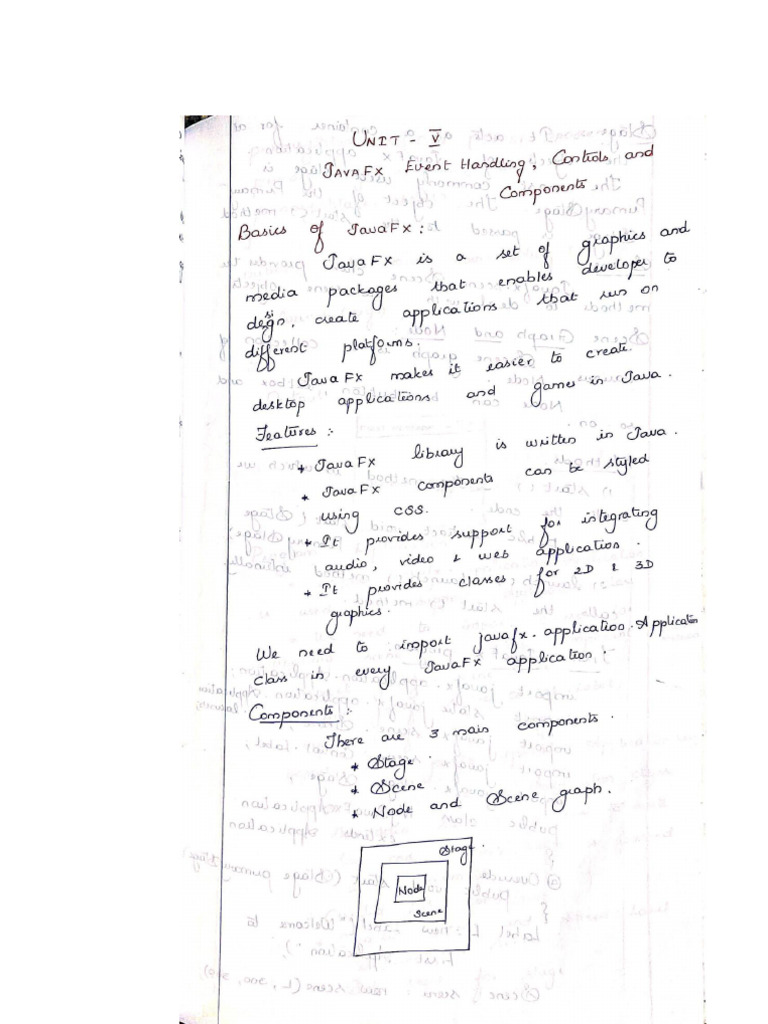 UNIT - V
JAVAFX Event Handling, Controls and
Components
Basics of JavaFX:
JavaFX is a set of graphics and
media packages that enables developer to
design, create applications that run on
different platforms.
JavaFX makes it easier to create
desktop applications and games in Java.
Features :-
* JavaFX library is written in Java.
* JavaFX components can be styled
using CSS.
* It provides support for integrating
audio, video & web application.
* It provides classes for 2D & 3D
graphics.
We need to import javafx.application.Application
class in every JavaFX application.
Components :-
There are 3 main components.
* Stage.
* Scene.
* Node and Scene graph.
Stage.
Node
Scene